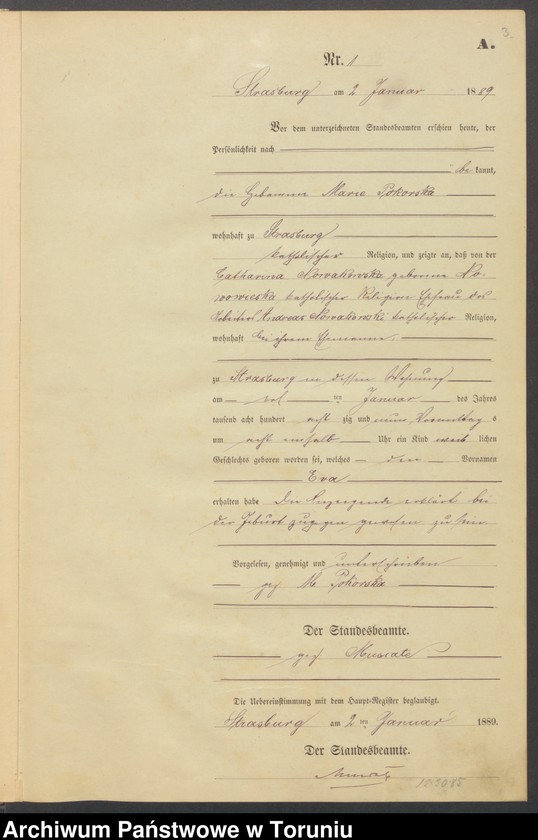 3.
A.
Nr. 1
Strasburg am 2 Januar 1889
Vor dem unterzeichneten Standesbeamten erschien heute, der
Persönlichkeit nach
bekannt,
die Hebamme Marie Pokorska
wohnhaft zu Strasburg
katholischer Religion, und zeigte an, daß von der
Catharina Nowakowska geborene No-
wowieska katholischer Religion Ehefrau des
Arbeiters Andreas Nowakowski katholischer Religion,
wohnhaft bei ihrem Ehemanne.
zu Strasburg in dessen Wohnung
am ersten Januar des Jahres
tausend acht hundert achtzig und neun Vormittags
um acht einhalb Uhr ein Kind weiblichen
Geschlechts geboren worden sei, welches den Vornamen
Eva
erhalten habe Die Anzeigende erklärt bei
der Geburt zugegen gewesen zu sein
Vorgelesen, genehmigt und unterschrieben
gez M Pokorska
Der Standesbeamte.
gez Muscate
Die Uebereinstimmung mit dem Haupt-Register beglaubigt.
Strasburg am 2ten Januar 1889.
Der Standesbeamte.
Archiwum Państwowe w Toruniu